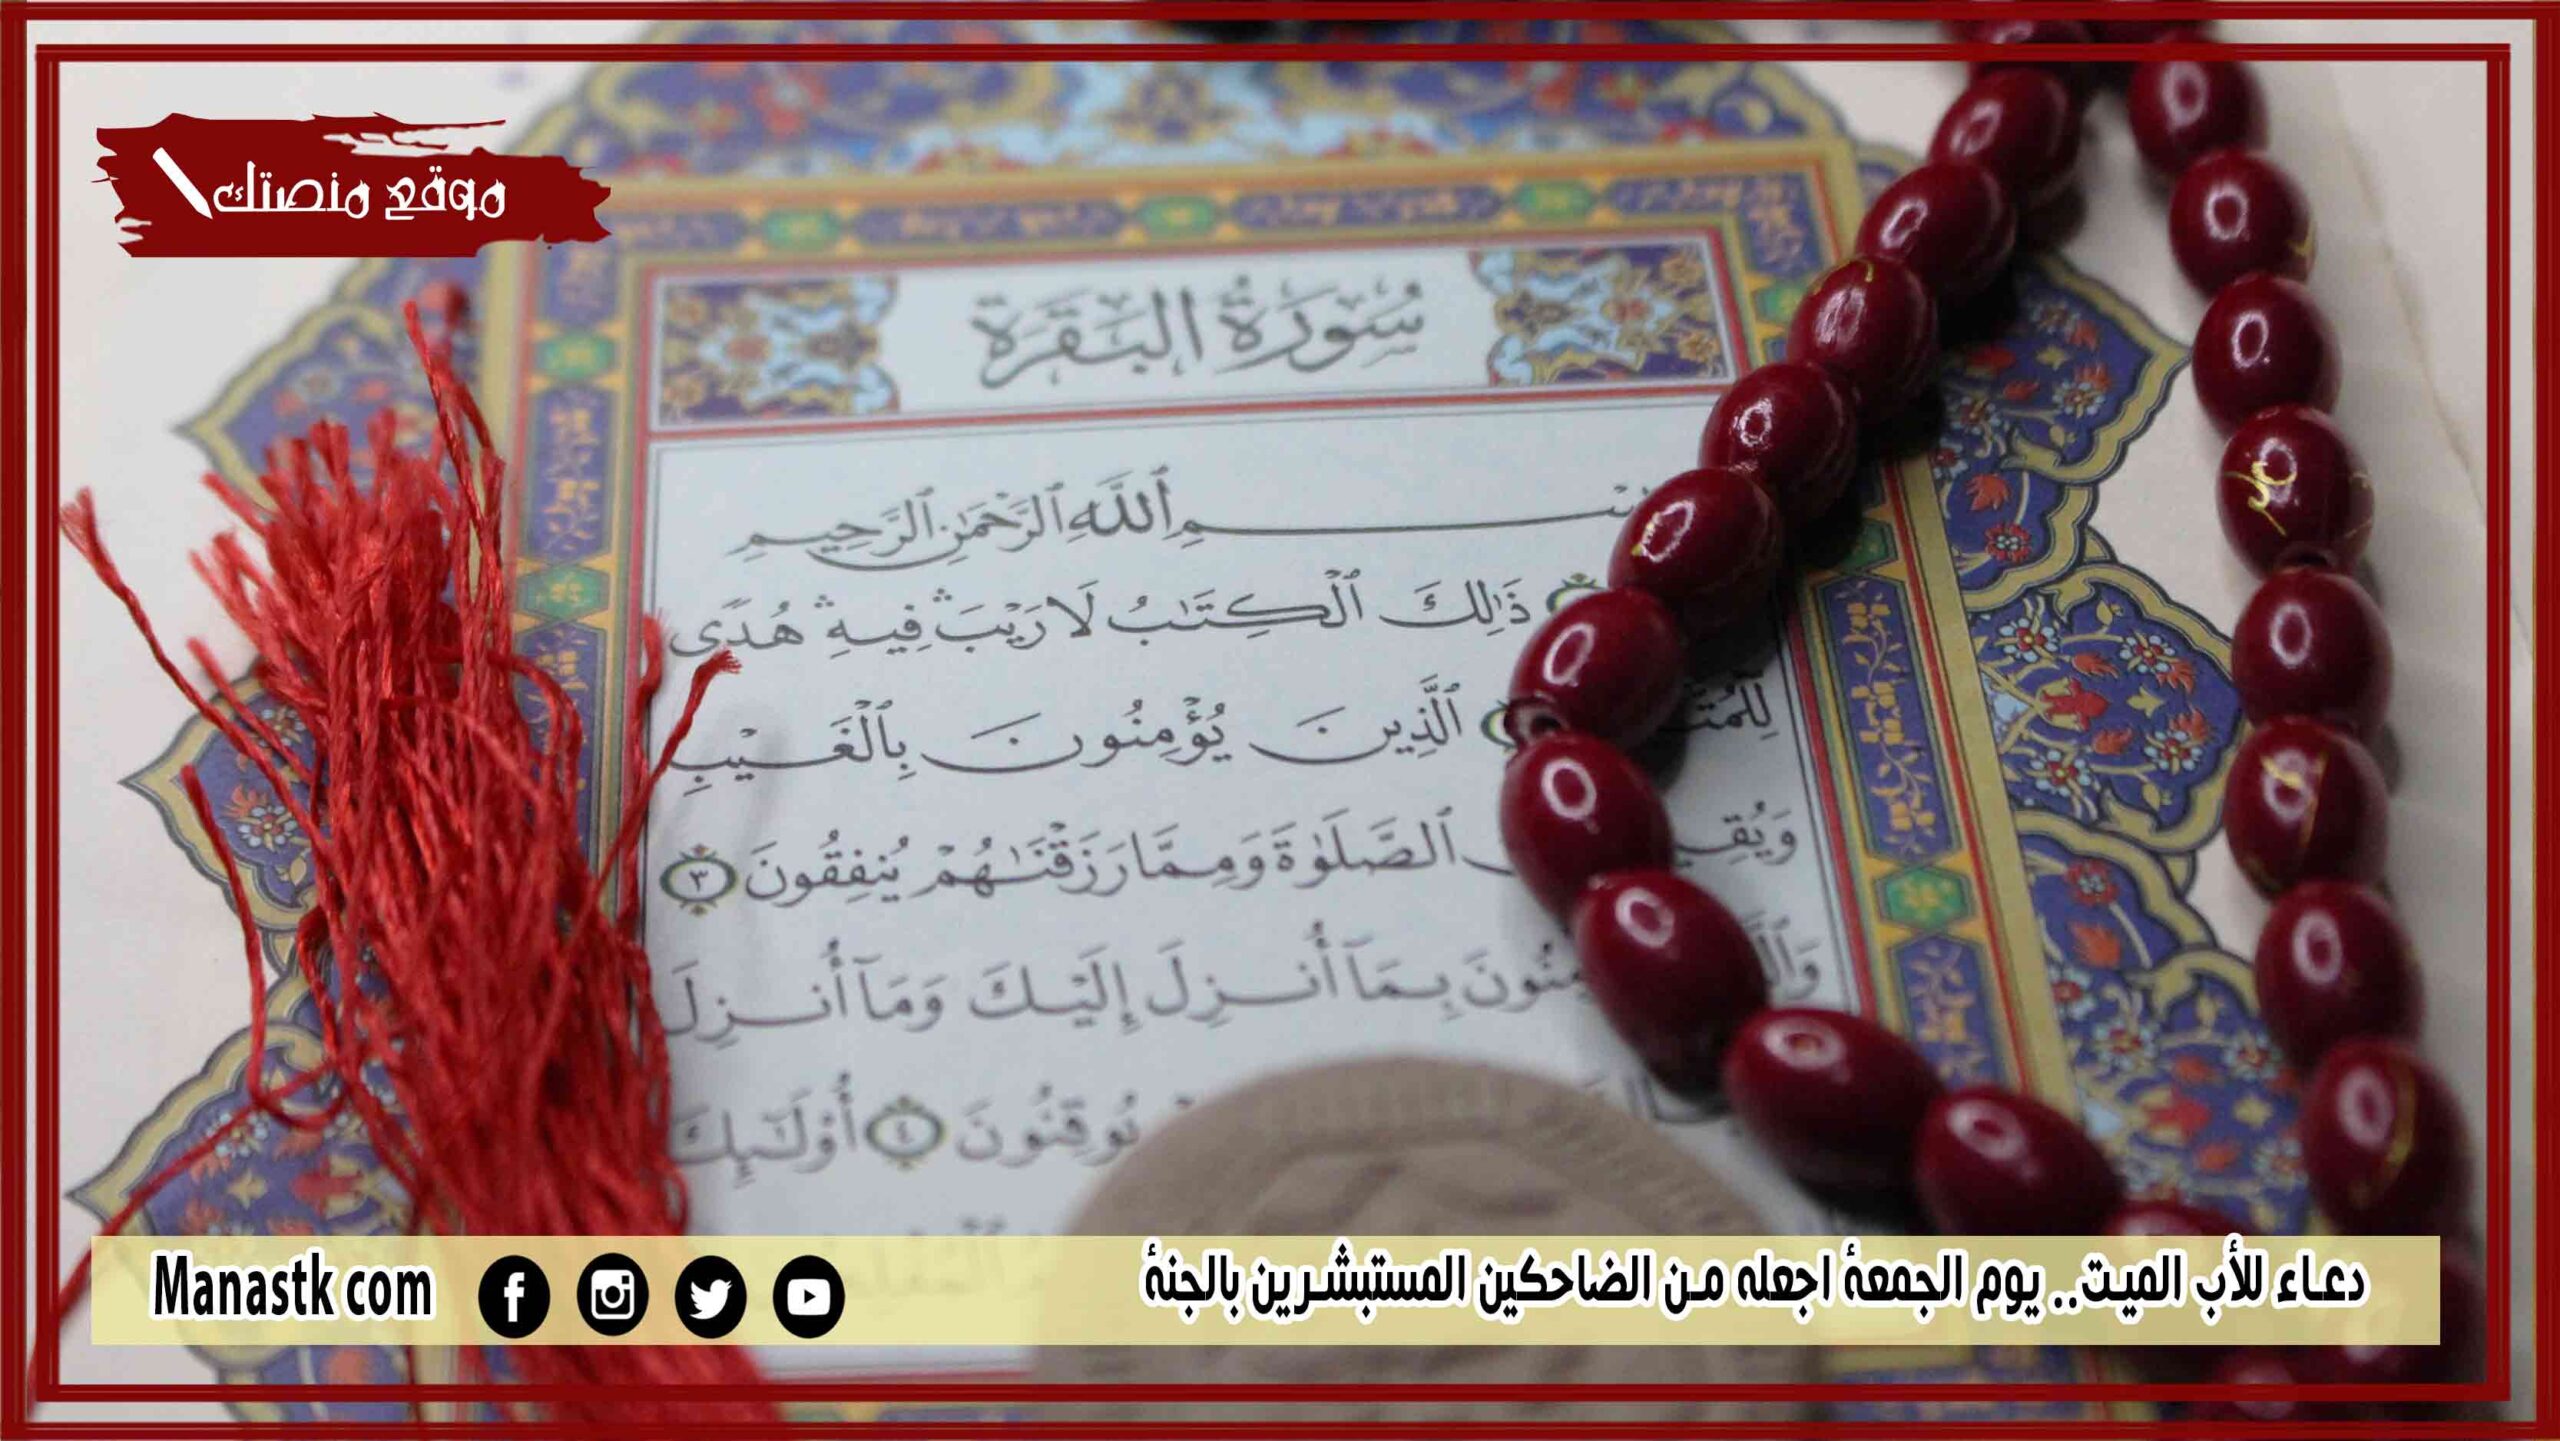 موقع منصتك
سُورَةُ البَقَرَة
بِسْمِ ٱللَّهِ ٱلرَّحْمَٰنِ ٱلرَّحِيمِ
ذَٰلِكَ ٱلْكِتَٰبُ لَا رَيْبَ ۛ فِيهِ ۛ هُدًى
ٱلَّذِينَ يُؤْمِنُونَ بِٱلْغَيْبِ
ٱلصَّلَوٰةَ وَمِمَّا رَزَقْنَٰهُمْ يُنفِقُونَ ٣
بِمَآ أُنزِلَ إِلَيْكَ وَمَآ أُنزِلَ
يُوقِنُونَ ٤ أُوْلَٰٓئِكَ
دعاء للأب الميت.. يوم الجمعة اجعله من الضاحكين المستبشرين بالجنة
Manastk com